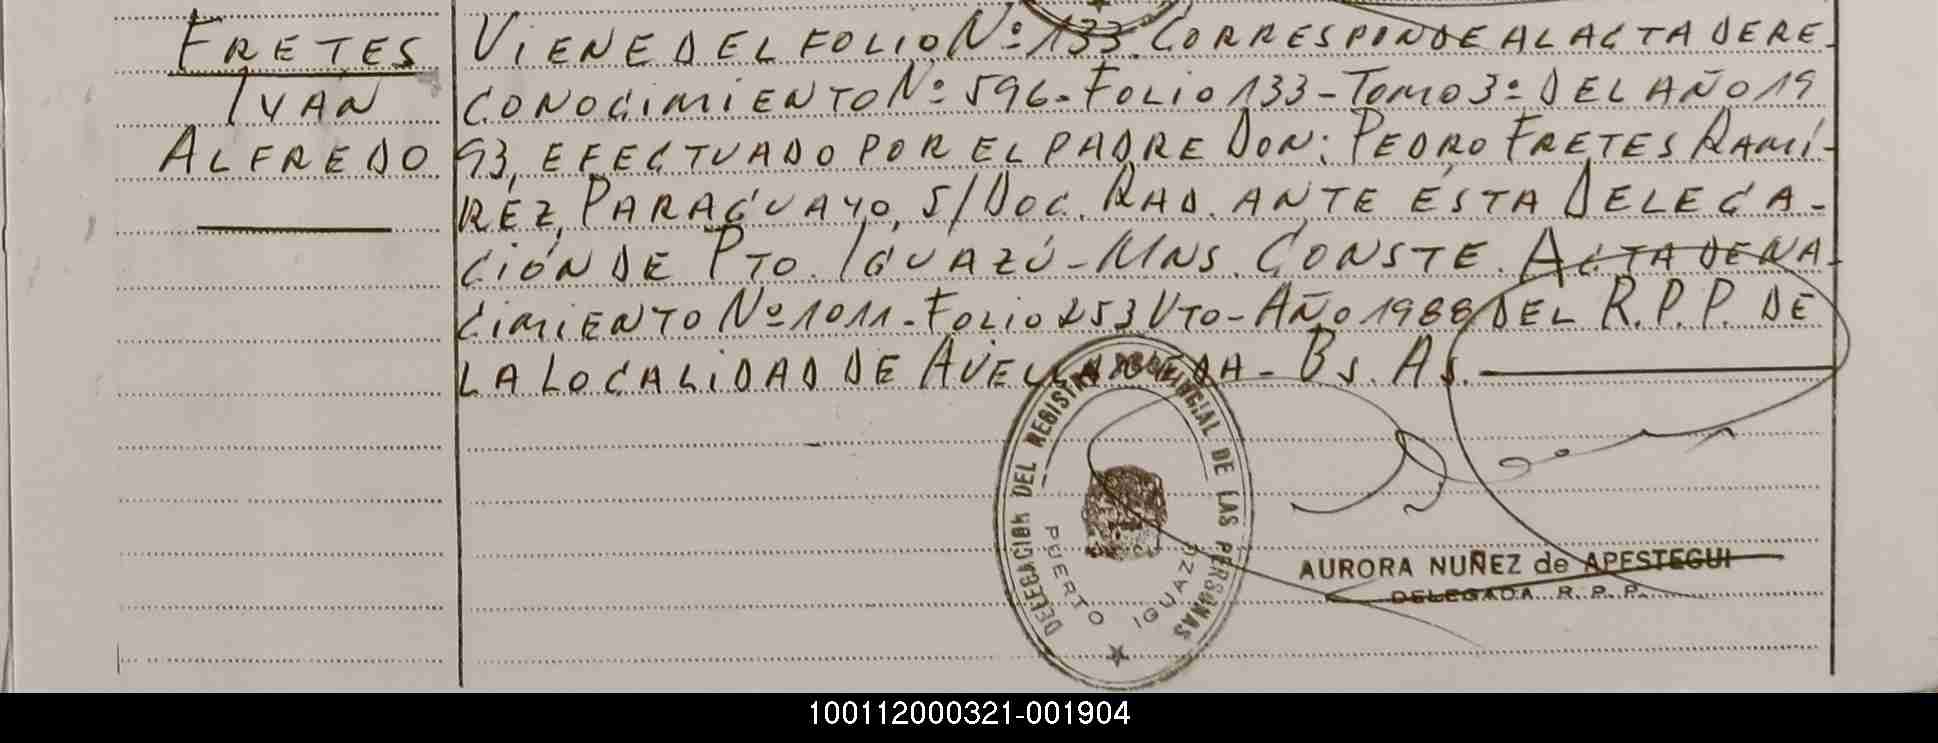 FRETES
IVAN
ALFREDO
VIENE DEL FOLIO Nº 133. CORRESPONDE AL ACTA DE RE-
CONOCIMIENTO Nº 596- FOLIO 133- TOMO 3º DEL AÑO 19
93, EFECTUADO POR EL PADRE DON: PEDRO FRETES RAMÍ-
REZ, PARAGUAYO, S/DOC. RAD. ANTE ÉSTA DELEGA-
CIÓN DE PTO. IGUAZÚ- MNS. CONSTE. ACTA DE NA-
CIMIENTO Nº 1011- FOLIO 253 VTO- AÑO 1988 DEL R.P.P. DE
LA LOCALIDAD DE AVELLANEDA- Bs. As.
DELEGACION DEL REGISTRO PROVINCIAL DE LAS PERSONAS
PUERTO IGUAZU
AURORA NUÑEZ de APESTEGUI
DELEGADA R. P. P.
100112000321-001904